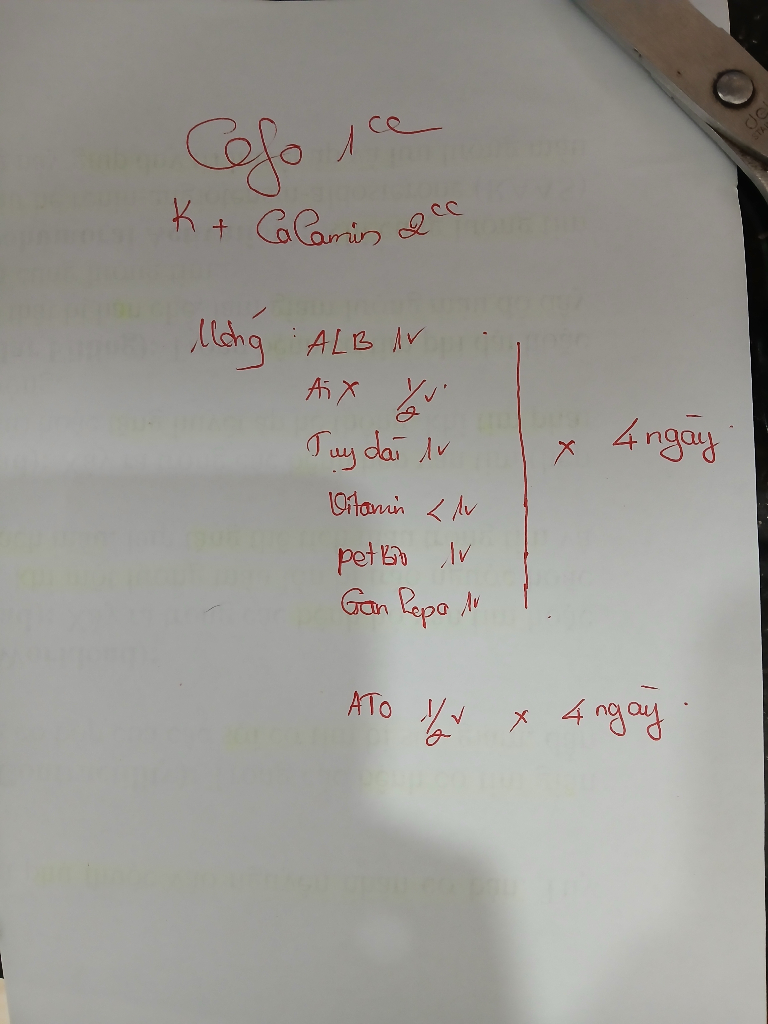 Cefo 1cc
K + Calamin 2cc
Uống : ALB 1v
Aix 1/2 v
Tuy dai 1v
Vitamin < 1v
petbio 1v
Gan hepa 1v
x 4 ngày
ATO 1/2 v x 4 ngày